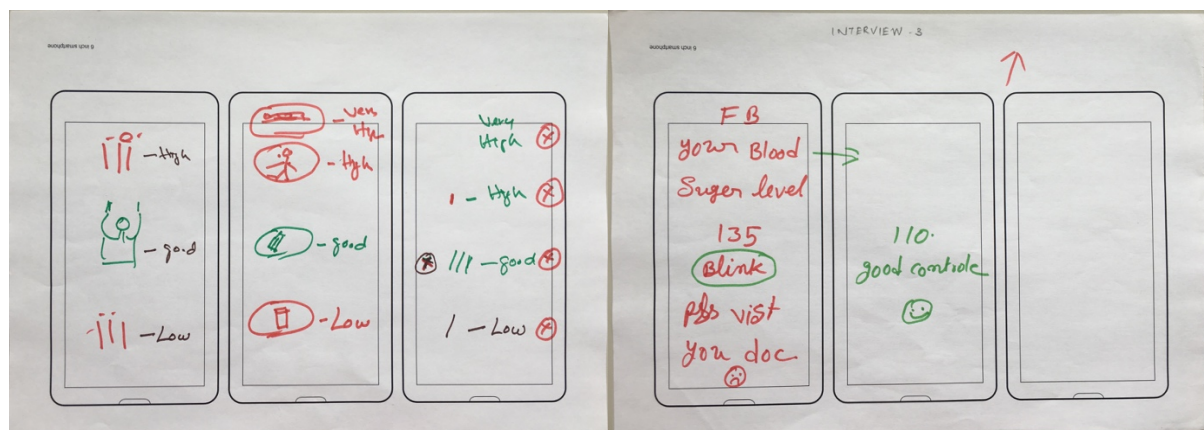 6 inch smartphone
- High
- good
- Low
- Very High
- High
- good
- Low
Very High
- High
- good
- Low
6 inch smartphone
INTERVIEW - 3
FB
your Blood
Suger level
135
Blink
Pls vist
you doc
110.
good controle